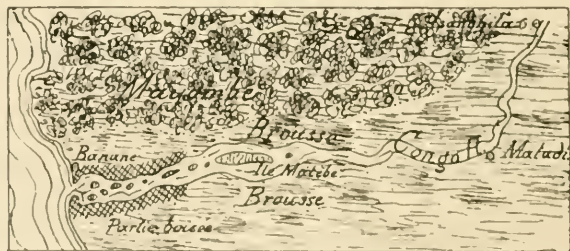 Mayombe
Brousse
Congo fl.
Matadi
Banane
Ile Matebe
Brousse
Partie basse